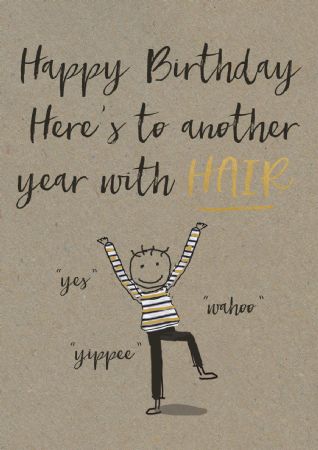 Happy Birthday
Here's to another
year with HAIR
"yes"
"wahoo"
"yippee"